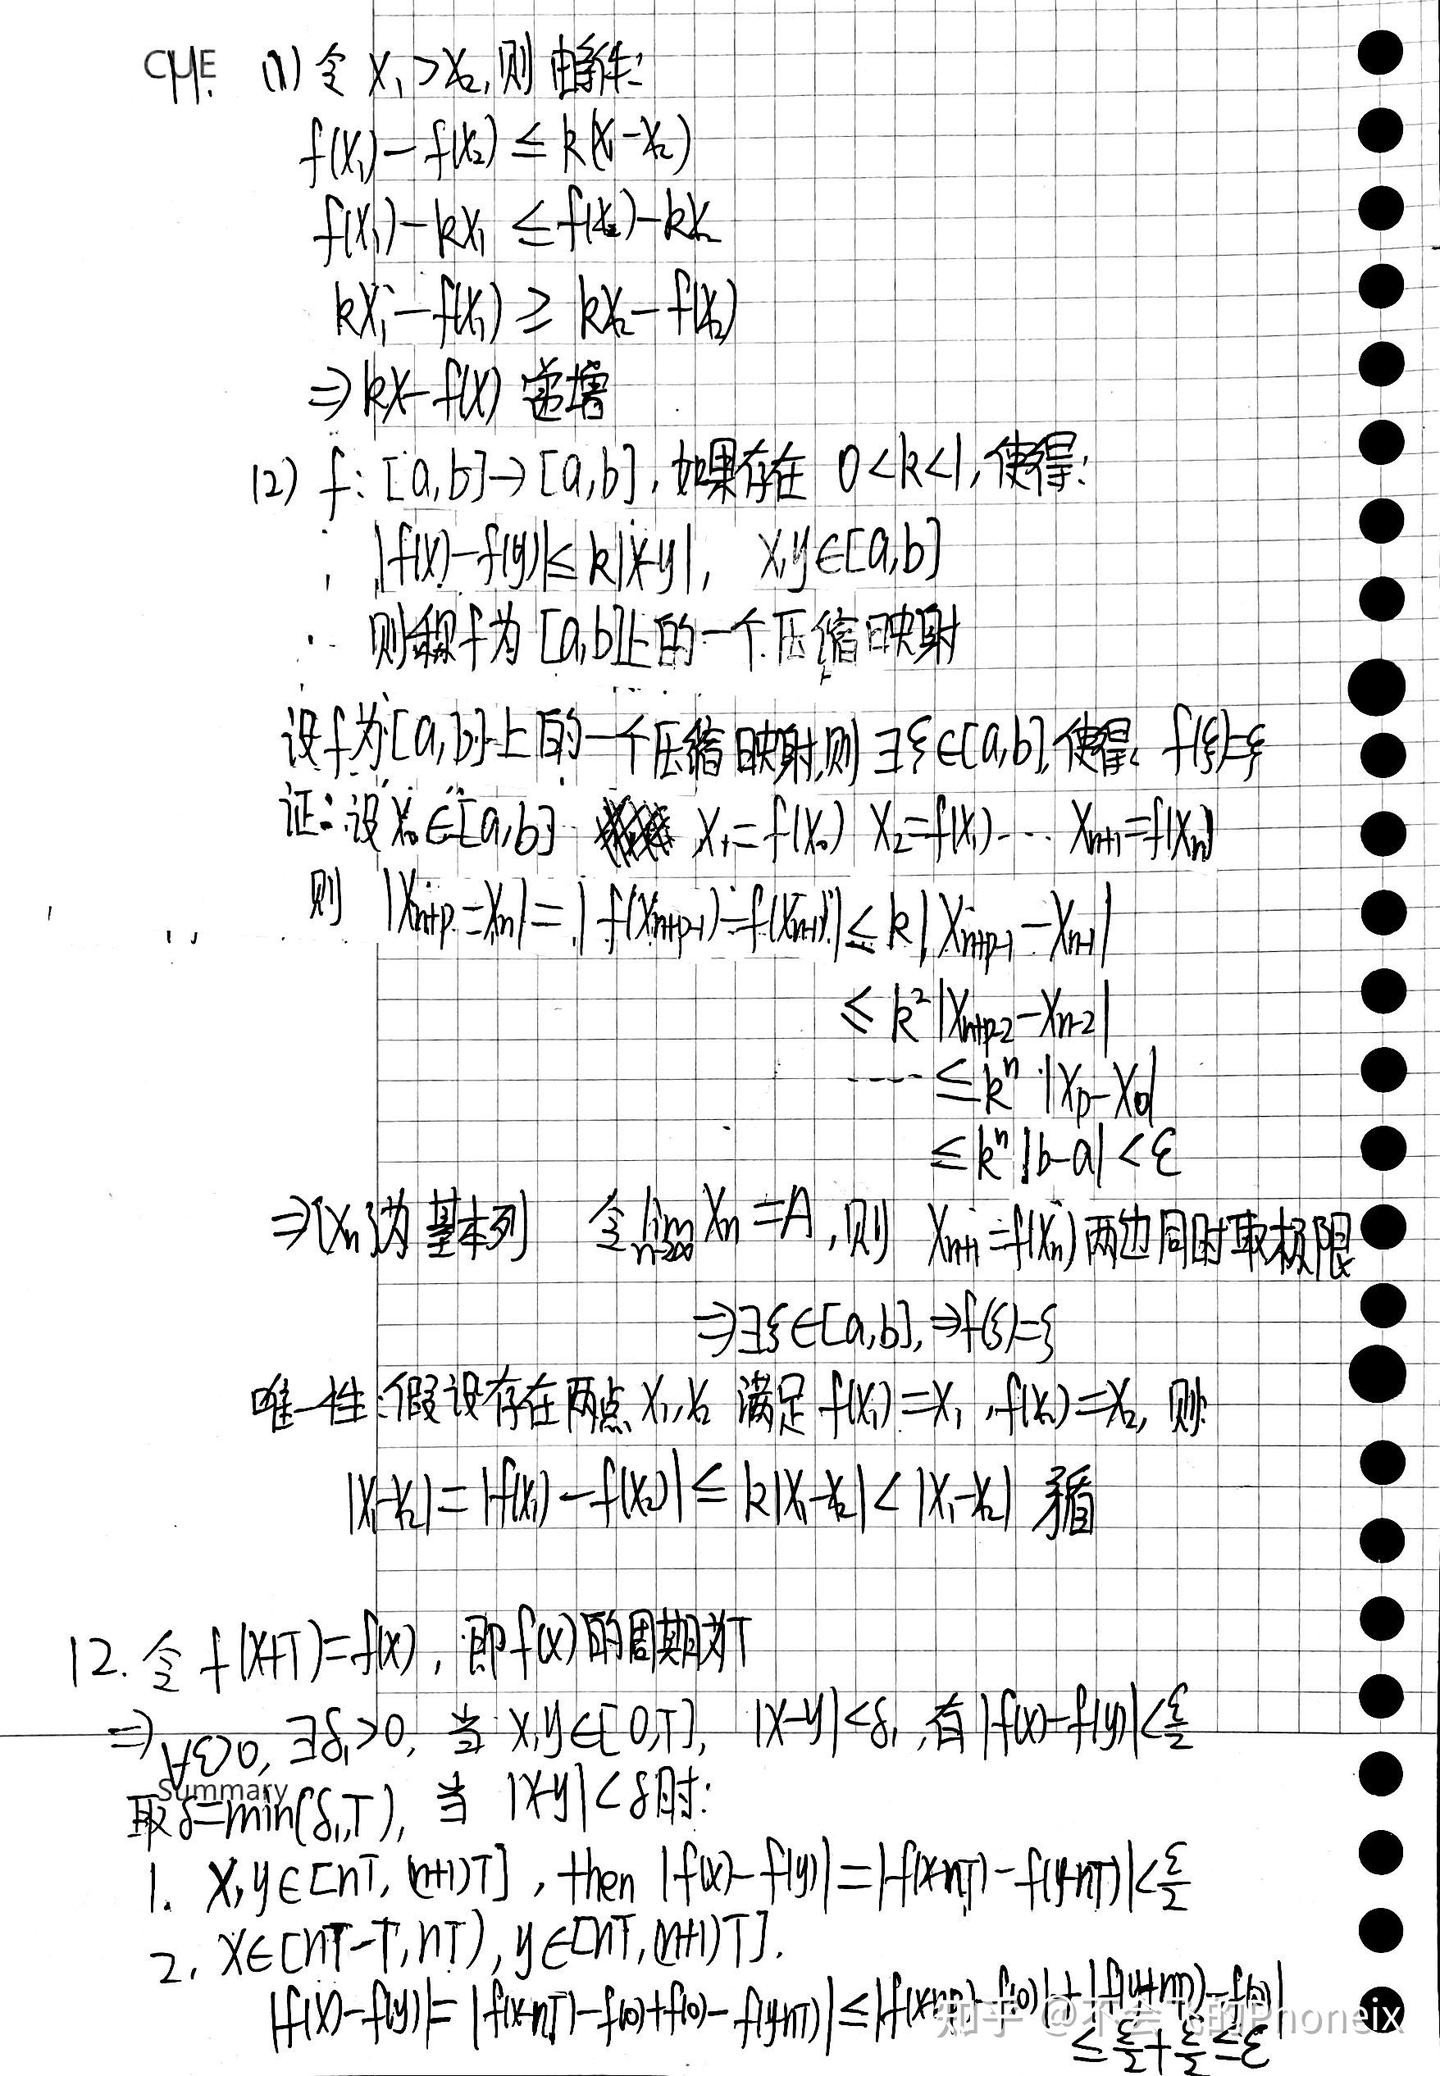 CUE
11. (1) 令 x₁>x₂,则由条件:
f(x₁)-f(x₂) ≤ k(x₁-x₂)
f(x₁)-kx₁ ≤ f(x₂)-kx₂
kx₁-f(x₁) ≥ kx₂-f(x₂)
⇒ kx-f(x) 递增
(2) f: [a,b]→[a,b],如果存在 0<k<1,使得:
|f(x)-f(y)| ≤ k|x-y|, x,y∈[a,b]
则称f为[a,b]上的一个压缩映射
设f为[a,b]上的一个压缩映射,则∃ξ∈[a,b],使得: f(ξ)=ξ
证:设x₀∈[a,b] x₁=f(x₀) x₂=f(x₁) ··· xₙ₊₁=f(xₙ)
则 |xₙ₊ₚ-xₙ|=|f(xₙ₊ₚ₋₁)-f(xₙ₋₁)| ≤ k|xₙ₊ₚ₋₁-xₙ₋₁|
≤ k²|xₙ₊ₚ₋₂-xₙ₋₂|
···· ≤ kⁿ·|xₚ-x₀|
≤ kⁿ|b-a|<ε
⇒{xₙ}为基本列 令 lim n→∞ xₙ=A,则 xₙ₊₁=f(xₙ) 两边同时取极限
⇒∃ξ∈[a,b],⇒f(ξ)=ξ
唯一性:假设存在两点 x₁,x₂ 满足 f(x₁)=x₁,f(x₂)=x₂,则:
|x₁-x₂|=|f(x₁)-f(x₂)| ≤ k|x₁-x₂|<|x₁-x₂| 矛盾
12. 令 f(x+T)=f(x),即f(x)的周期为T
⇒ ∀ε>0,∃δ₁>0,当 x,y∈[0,T], |x-y|<δ₁,有|f(x)-f(y)|<ε/2
Summary
取δ=min(δ₁,T),当 |x-y|<δ时:
1. x,y∈[nT,(n+1)T],then |f(x)-f(y)|=|f(x-nT)-f(y-nT)|<ε/2
2. x∈[nT-T,nT),y∈[nT,(n+1)T].
|f(x)-f(y)|=|f(x-nT)-f(0)+f(0)-f(y-nT)| ≤ |f(x+nT)-f(0)|+|f(y+nT)-f(0)|
≤ ε/2+ε/2≤ε
知乎 @不会飞的Phoneix